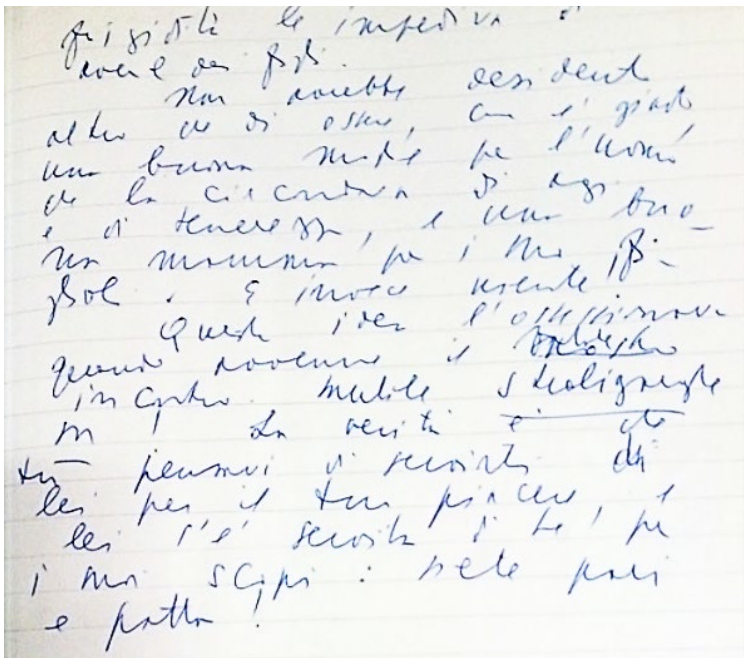 frigidità le impediva di
avere dei figli.
Non avrebbe desiderato
altro che di essere, com'è giusto
una buona moglie per l'uomo
che la circondava di agi
e di tenerezza, e una buo-
na mamma per i suoi fi-
glioli. E invece niente!
Questa idea l'ossessionava
quando avvenne il
incontro. Inutile
m! La verità è che
tu pensavi di servirti di
lei per il tuo piacere, e
lei s'è servita di te per
i suoi scopi: siete pari
e patta!